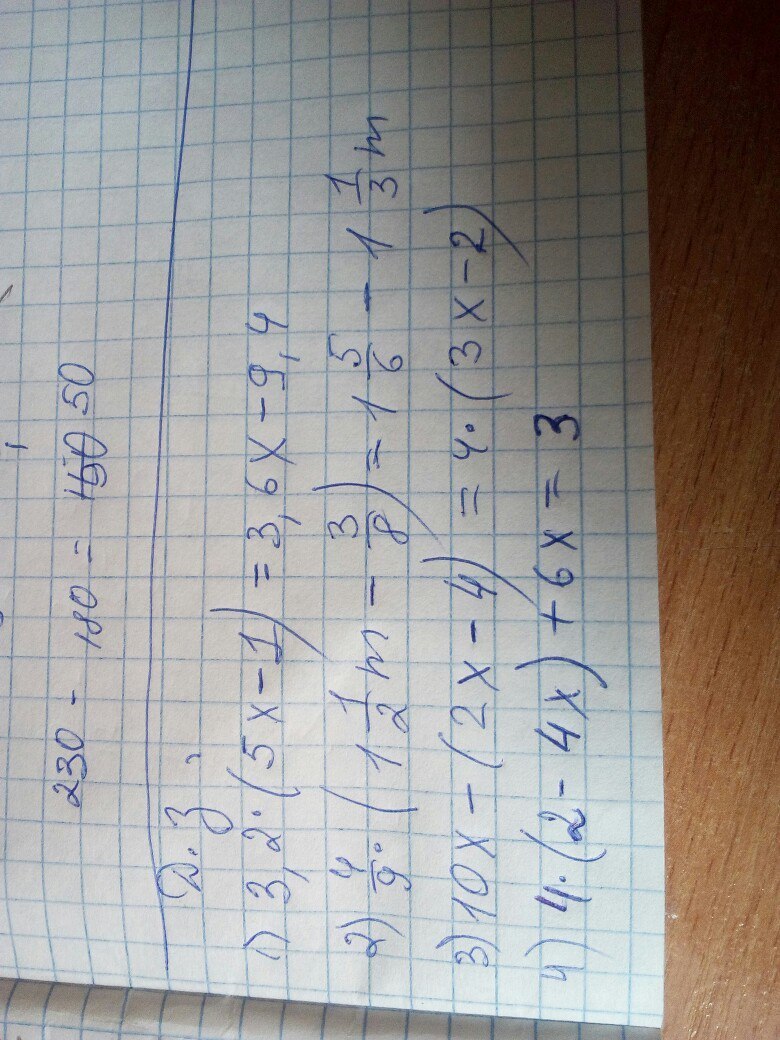 230 - 180 = 150 50
Д.З.
1) 3,2·(5x-1) = 3,6x-9,4
2) 4/9·(1 1/2 m - 3/8) = 1 5/6 - 1 1/3 m
3) 10x-(2x-4) = 4·(3x-2)
4) 4·(2-4x)+6x=3